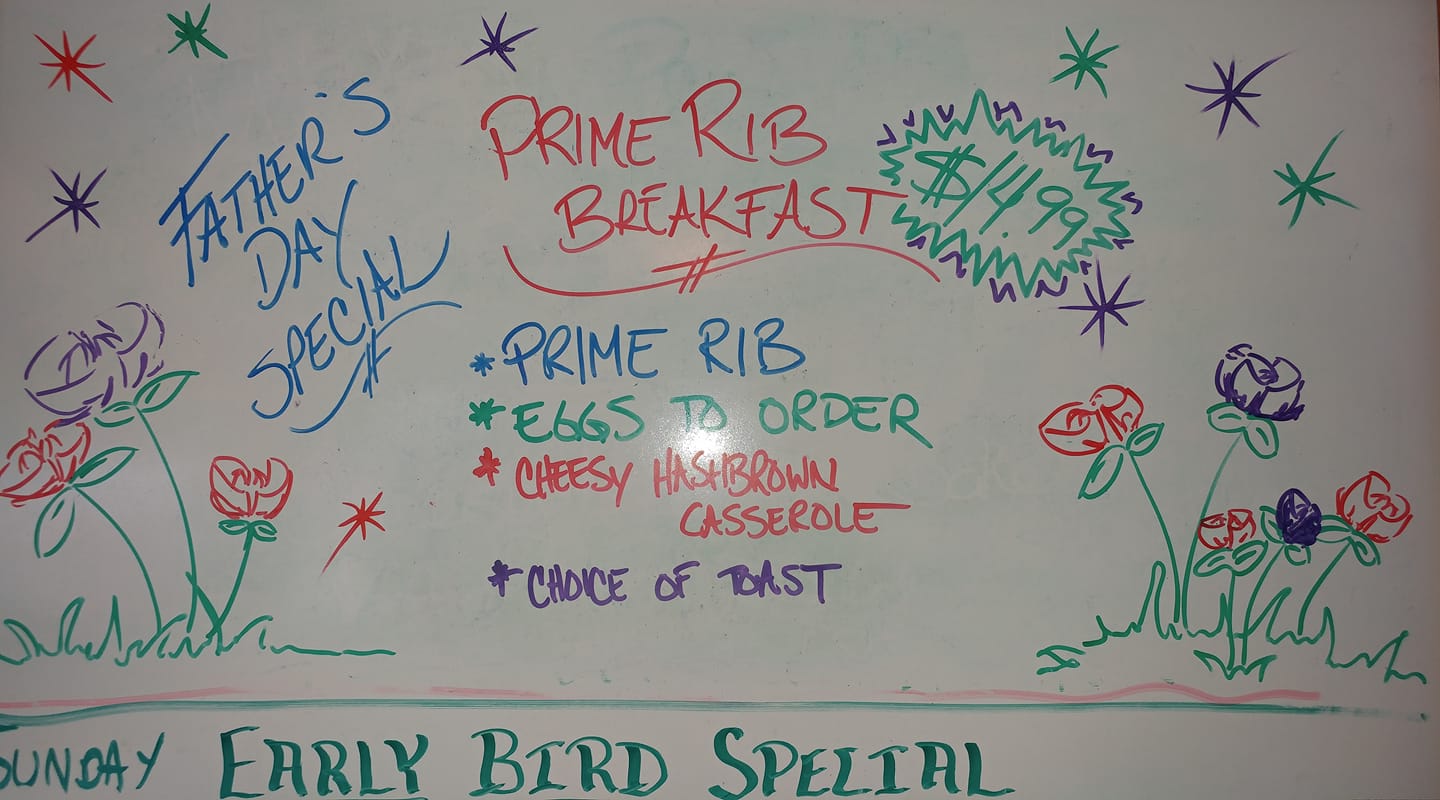 FATHER'S
DAY
SPECIAL
PRIME RIB
BREAKFAST
$14.99
* PRIME RIB
* EGGS TO ORDER
* CHEESY HASHBROWN
CASSEROLE
* CHOICE OF TOAST
SUNDAY EARLY BIRD SPECIAL